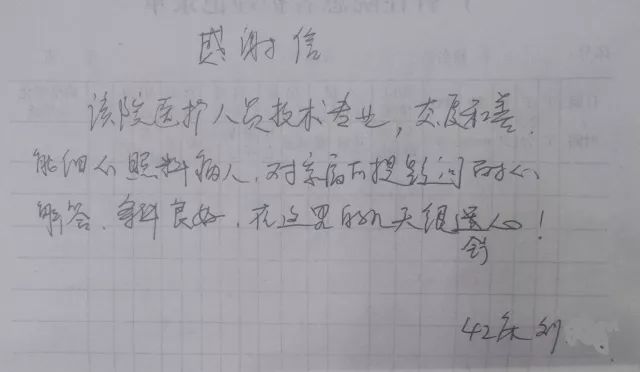 感谢信
该院医护人员技术专业，态度和善，
能细心照料病人，对家属所提疑问耐心
解答，条件良好，在这里的几天很温心！
42床 刘